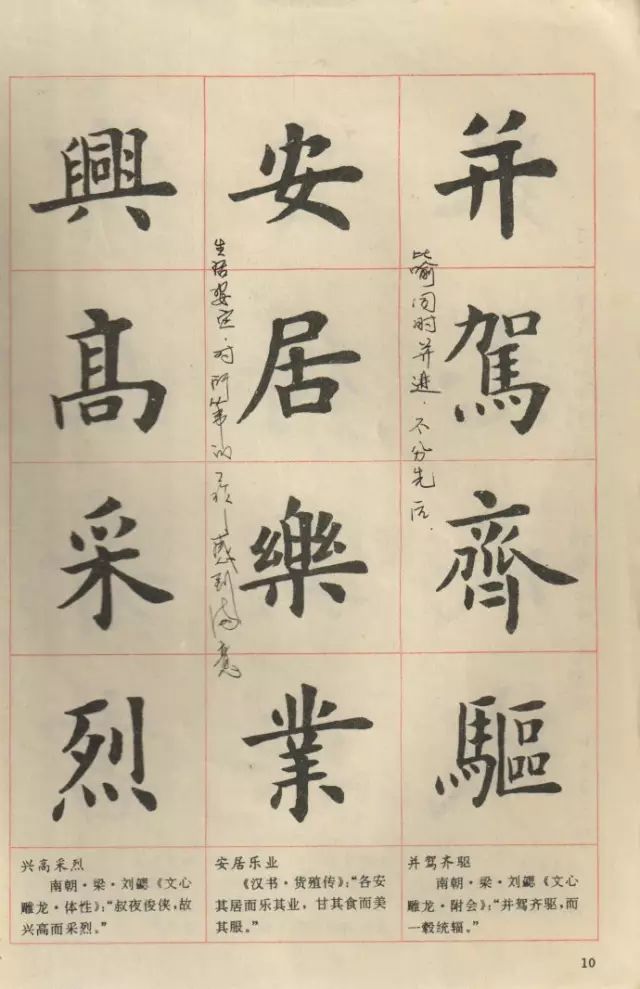 并駕齊驅
比喻同时并进.不分先后.
安居樂業
生活安定.对所从事的
感到满意
興高采烈
兴高采烈
南朝·梁·刘勰《文心
雕龙·体性》:“叔夜俊侠,故
兴高而采烈。”
安居乐业
《汉书·货殖传》:“各安
其居而乐其业,甘其食而美
其服。”
并驾齐驱
南朝·梁·刘勰《文心
雕龙·附会》:“并驾齐驱,而
一毂统辐。”
10